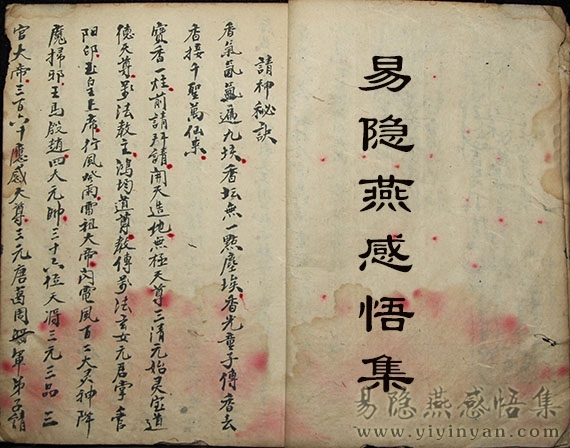 易隐燕感悟集
請神秘訣
香氣氤氳遍九垓香坛無一點塵埃香光童子傳香去
香接千聖萬仙來
寶香一炷前請拜請開天造地無極天尊三清元始灵宝道
德天尊法教主鴻均道尊教傳法玄女元君掌管
玉皇上帝行風發雨雷祖大帝閃電風百二大灵神降
魔掃邪王馬殷趙四大元帥三十六位天將三元三品三
官大帝三百六十應感天尊三元唐葛周將軍弟請
易隐燕感悟集
www.yiyinyan.com